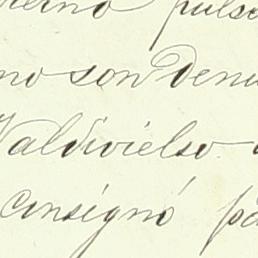 puls
no son Denu
Valdivielso
consignó pa